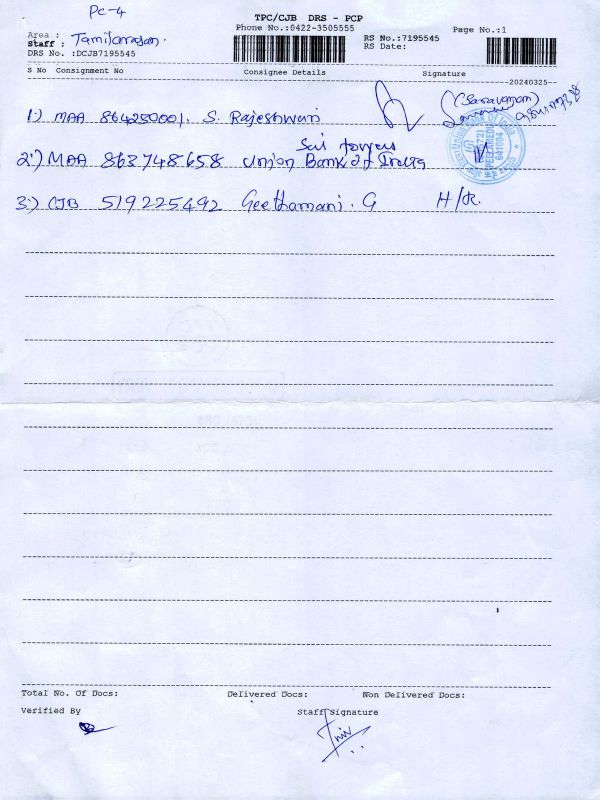 PC-4
TPC/CJB DRS - PCP
Phone No.:0422-3505555
Page No.:1
Area :
Staff : Tamilarasan.
RS No.:7195545
RS Date:
DRS No. :DCJB7195545
S No Consignment No Consignee Details Signature
20240325
1) MAA 864250001. S. Rajeshwari
(Saravanan)
Sai towers
2) MAA 863748658 Union Bank of India
641004
3) CJB 519225492 Geethamani. G H/R.
Total No. Of Docs: Delivered Docs: Non Delivered Docs:
Verified By Staff Signature